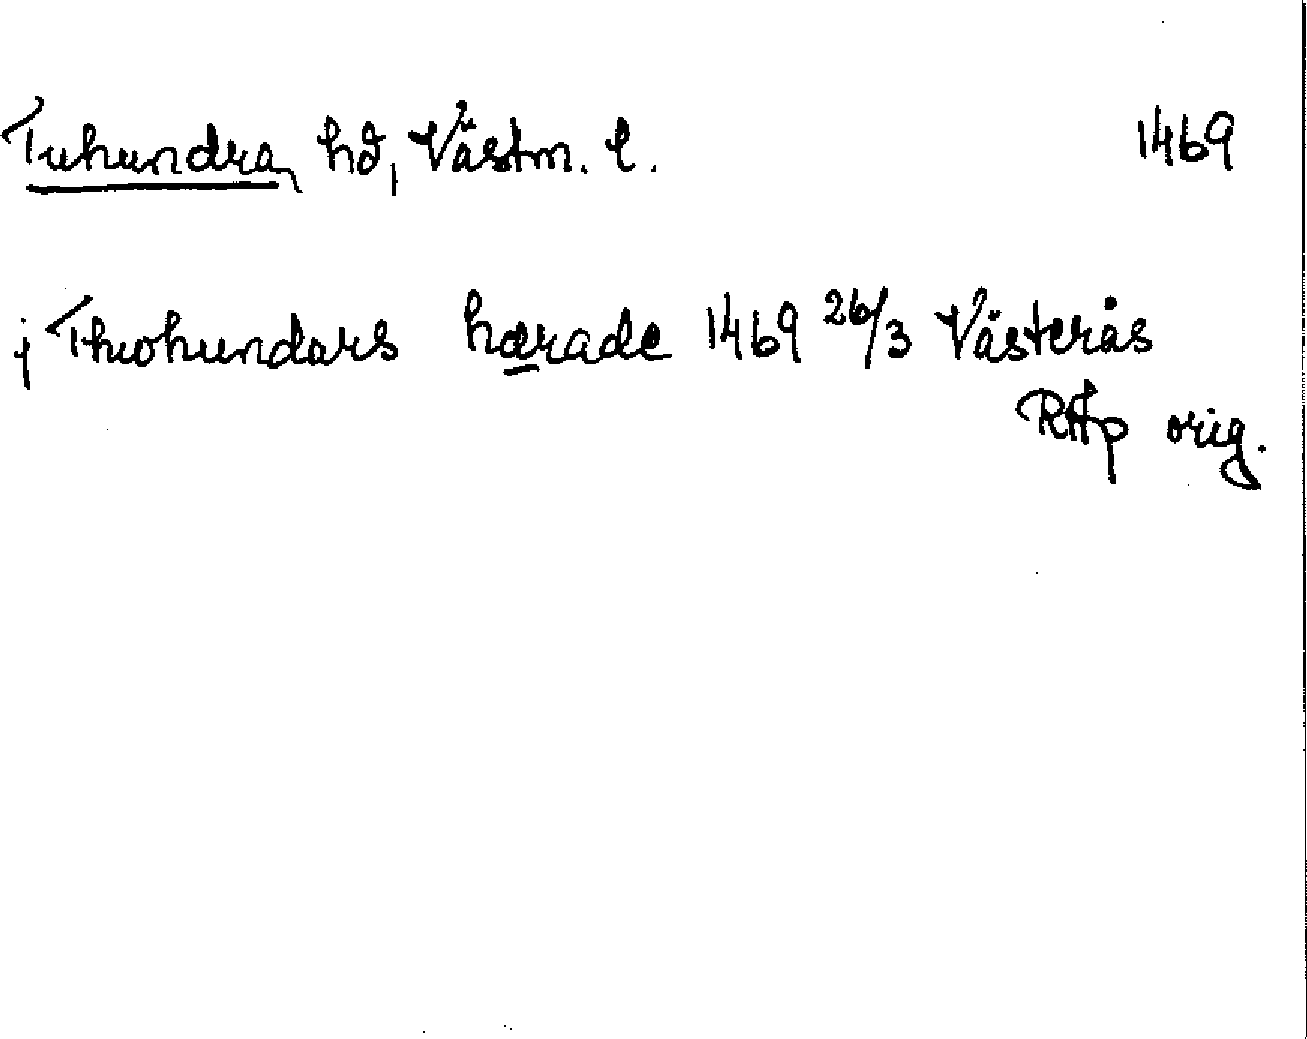 Tuhundra hd, Västm. l. 1469
j Thwohundars hærade 1469 26/3 Västerås
RAp orig.